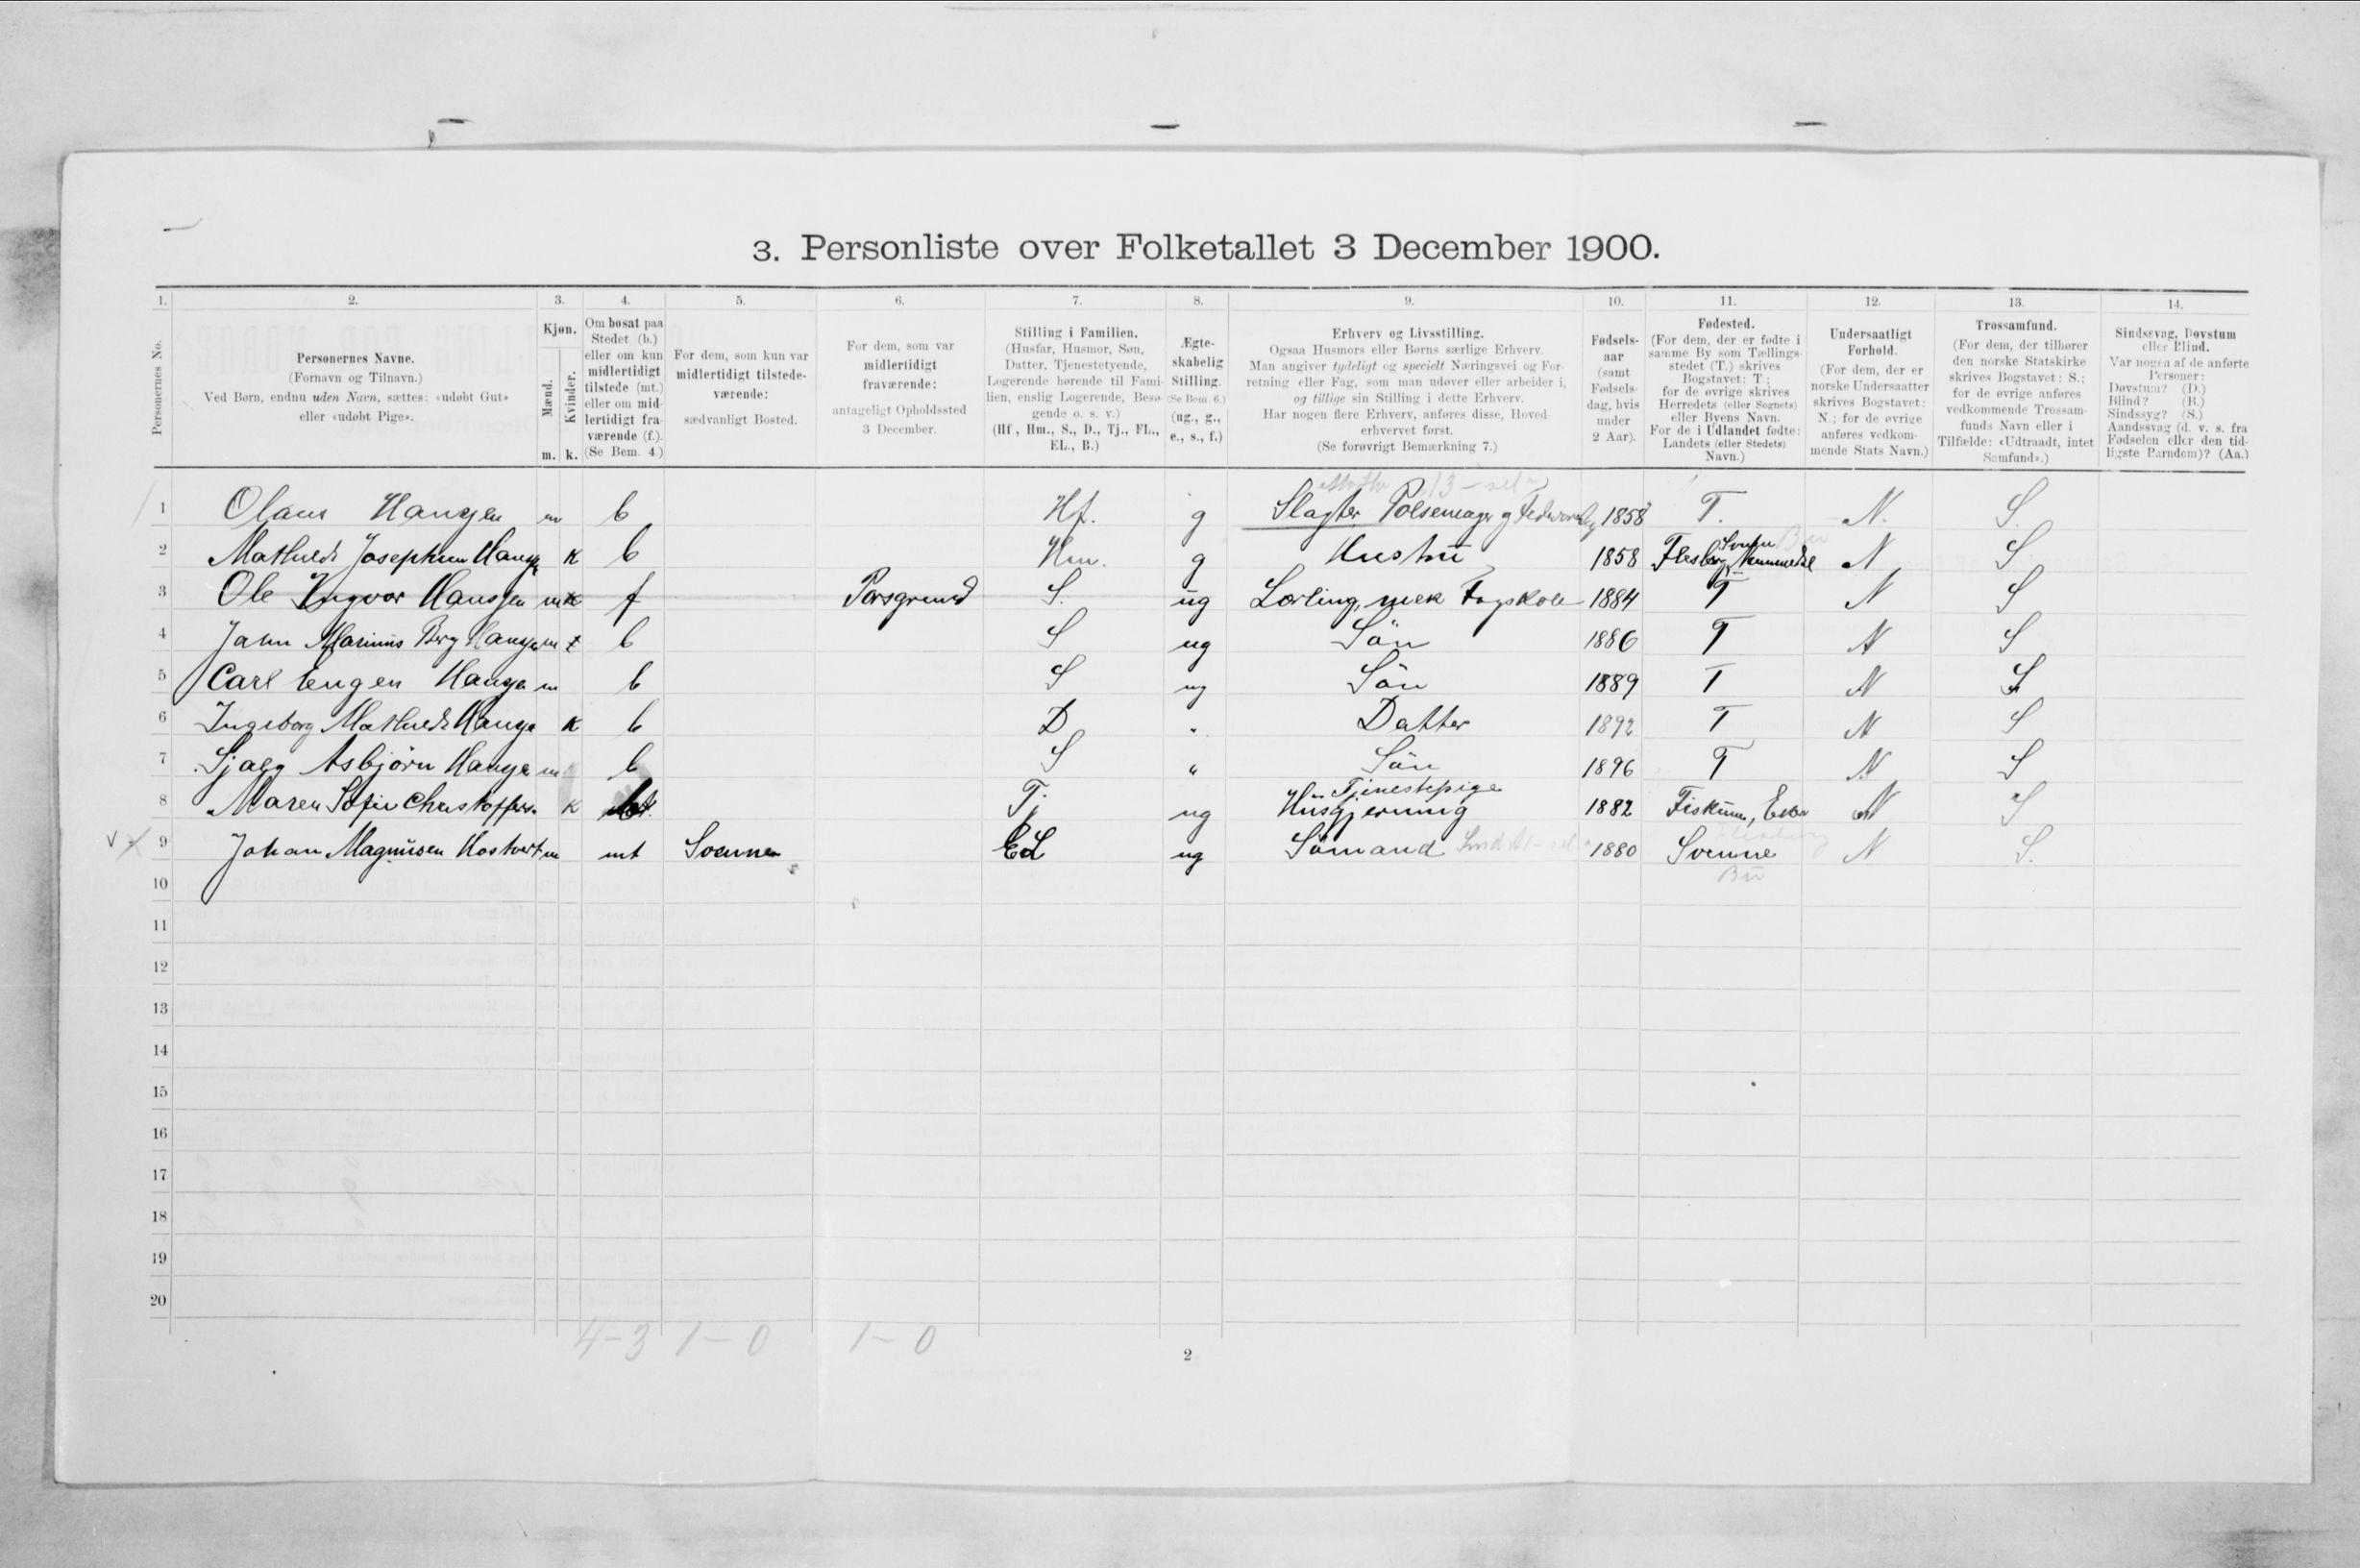 3. Personliste over Folketallet 3 December 1900.
1. 2. 3. 4. 5. 6. 7. 8. 9. 10. 11. 12. 13. 14.
Personernes No.
Personernes Navne.
(Fornavn og Tilnavn.)
Ved Børn, endnu uden Navn, sættes: «udøbt Gut»
eller «udøbt Pige».
Kjøn.
Mænd.
Kvinder.
m. k.
Om bosat paa
Stedet (b.)
eller om kun
midlertidigt
tilstede (mt.)
eller om mid-
lertidigt fra-
værende (f.).
(Se Bem. 4.)
For dem, som kun var
midlertidigt tilstede-
værende:
sædvanligt Bosted.
For dem, som var
midlertidigt
fraværende:
antageligt Opholdssted
3 December.
Stilling i Familien.
(Husfar, Husmor, Søn,
Datter, Tjenestetyende,
Logerende hørende til Fami-
lien, enslig Logerende, Besø-
gende o. s. v.)
(Hf, Hm., S., D., Tj., FL.,
EL., B.)
Ægte-
skabelig
Stilling.
(Se Bem. 6.)
(ug., g.,
e., s., f.)
Erhverv og Livsstilling.
Ogsaa Husmors eller Børns særlige Erhverv.
Man angiver tydeligt og specielt Næringsvei og For-
retning eller Fag, som man udøver eller arbeider i,
og tillige sin Stilling i dette Erhverv.
Har nogen flere Erhverv, anføres disse, Hoved-
erhvervet først.
(Se forøvrigt Bemærkning 7.)
Fødsels-
aar
(samt
Fødsels-
dag, hvis
under
2 Aar).
Fødested.
(For dem, der er fødte i
samme By som Tællings-
stedet (T.) skrives
Bogstavet: T;
for de øvrige skrives
Herredets (eller Sognets)
eller Byens Navn.
For de i Udlandet fødte:
Landets (eller Stedets)
Navn.)
Undersaatligt
Forhold.
(For dem, der er
norske Undersaatter
skrives Bogstavet:
N.; for de øvrige
anføres vedkom-
mende Stats Navn.)
Trossamfund.
(For dem, der tilhører
den norske Statskirke
skrives Bogstavet: S.;
for de øvrige anføres
vedkommende Trossam-
funds Navn eller i
Tilfælde: «Udtraadt, intet
Samfund».)
Sindssvag, Døvstum
eller Blind.
Var nogen af de anførte
Personer:
Døvstum? (D.)
Blind? (B.)
Sindssyg? (S.)
Aandssvag (d. v. s. fra
Fødselen eller den tid-
ligste Barndom)? (Aa.)
1 Olaus m b Hf. g Slagter Pølsemager 1858 T. N. S.
2 Mathilde Josephine K b Hm. g Hustru 1858 Flesberg Nummedal N S
3 Ole Ingvar m f Porsgrund S. ug Lærling, mek Fagskole 1884 T N S
4 Jahn Marinius Berg m b S ug Sön 1886 T N S
5 Carl Eugen m b S ug Sön 1889 T N S
6 Ingeborg Mathilde K b D " Datter 1892 T N S
7 Asbjörn m b S " Sön 1896 T N S
Tjenestepige
8 Maren Sofie Christoffers. K Tj ug Husgjerning 1882 Fiskum, Eker N S
9 Johan Magnusen m mt Svenne EL ug Sömand 1880 Svenne N S.
10
11
12
13
14
15
16
17
18
19
20
4-3 1-0 1-0
2